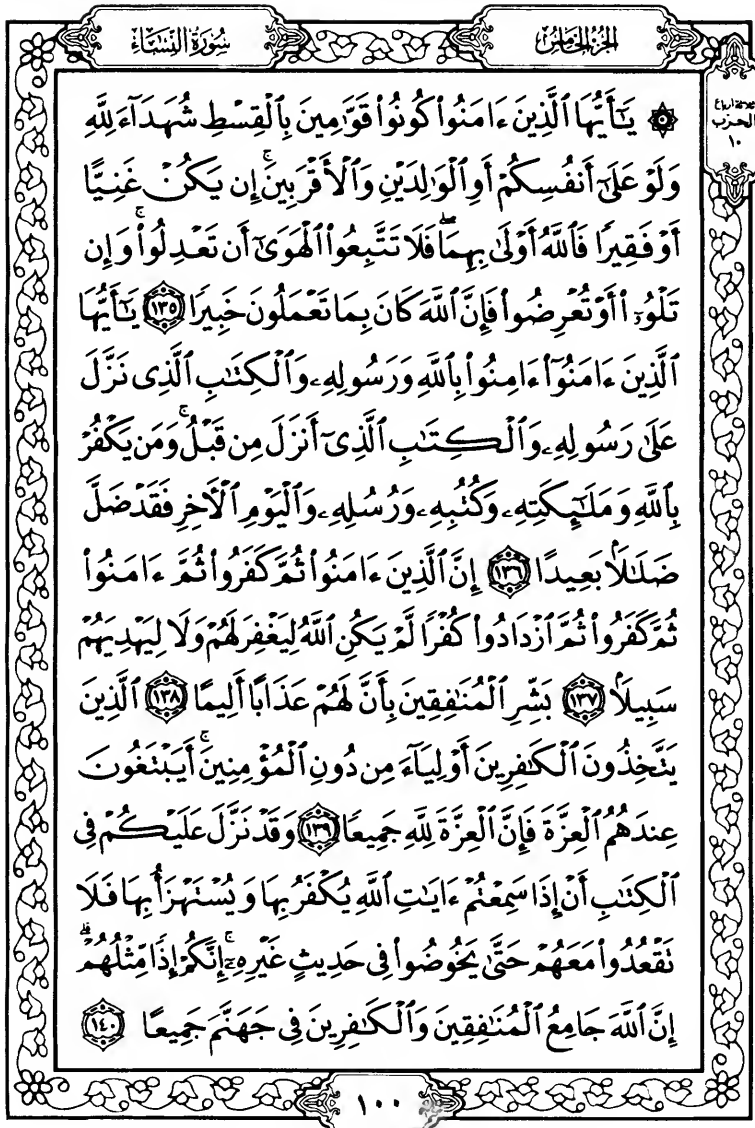 سُورَةُ النِّسَاءِ
الجُزْءُ الخَامِسُ
ثلاثة أرباع
الحزب
١٠
۞ يَـٰٓأَيُّهَا ٱلَّذِينَ ءَامَنُوا۟ كُونُوا۟ قَوَّٰمِينَ بِٱلْقِسْطِ شُهَدَآءَ لِلَّهِ
وَلَوْ عَلَىٰٓ أَنفُسِكُمْ أَوِ ٱلْوَٰلِدَيْنِ وَٱلْأَقْرَبِينَ ۚ إِن يَكُنْ غَنِيًّا
أَوْ فَقِيرًا فَٱللَّهُ أَوْلَىٰ بِهِمَا ۖ فَلَا تَتَّبِعُوا۟ ٱلْهَوَىٰٓ أَن تَعْدِلُوا۟ ۚ وَإِن
تَلْوُۥٓا۟ أَوْ تُعْرِضُوا۟ فَإِنَّ ٱللَّهَ كَانَ بِمَا تَعْمَلُونَ خَبِيرًا ١٣٥ يَـٰٓأَيُّهَا
ٱلَّذِينَ ءَامَنُوٓا۟ ءَامِنُوا۟ بِٱللَّهِ وَرَسُولِهِۦ وَٱلْكِتَـٰبِ ٱلَّذِى نَزَّلَ
عَلَىٰ رَسُولِهِۦ وَٱلْكِتَـٰبِ ٱلَّذِىٓ أَنزَلَ مِن قَبْلُ ۚ وَمَن يَكْفُرْ
بِٱللَّهِ وَمَلَـٰٓئِكَتِهِۦ وَكُتُبِهِۦ وَرُسُلِهِۦ وَٱلْيَوْمِ ٱلْـَٔاخِرِ فَقَدْ ضَلَّ
ضَلَـٰلًۢا بَعِيدًا ١٣٦ إِنَّ ٱلَّذِينَ ءَامَنُوا۟ ثُمَّ كَفَرُوا۟ ثُمَّ ءَامَنُوا۟
ثُمَّ كَفَرُوا۟ ثُمَّ ٱزْدَادُوا۟ كُفْرًا لَّمْ يَكُنِ ٱللَّهُ لِيَغْفِرَ لَهُمْ وَلَا لِيَهْدِيَهُمْ
سَبِيلًۢا ١٣٧ بَشِّرِ ٱلْمُنَـٰفِقِينَ بِأَنَّ لَهُمْ عَذَابًا أَلِيمًا ١٣٨ ٱلَّذِينَ
يَتَّخِذُونَ ٱلْكَـٰفِرِينَ أَوْلِيَآءَ مِن دُونِ ٱلْمُؤْمِنِينَ ۚ أَيَبْتَغُونَ
عِندَهُمُ ٱلْعِزَّةَ فَإِنَّ ٱلْعِزَّةَ لِلَّهِ جَمِيعًا ١٣٩ وَقَدْ نَزَّلَ عَلَيْكُمْ فِى
ٱلْكِتَـٰبِ أَنْ إِذَا سَمِعْتُمْ ءَايَـٰتِ ٱللَّهِ يُكْفَرُ بِهَا وَيُسْتَهْزَأُ بِهَا فَلَا
تَقْعُدُوا۟ مَعَهُمْ حَتَّىٰ يَخُوضُوا۟ فِى حَدِيثٍ غَيْرِهِۦٓ ۚ إِنَّكُمْ إِذًا مِّثْلُهُمْ ۗ
إِنَّ ٱللَّهَ جَامِعُ ٱلْمُنَـٰفِقِينَ وَٱلْكَـٰفِرِينَ فِى جَهَنَّمَ جَمِيعًا ١٤٠
١٠٠